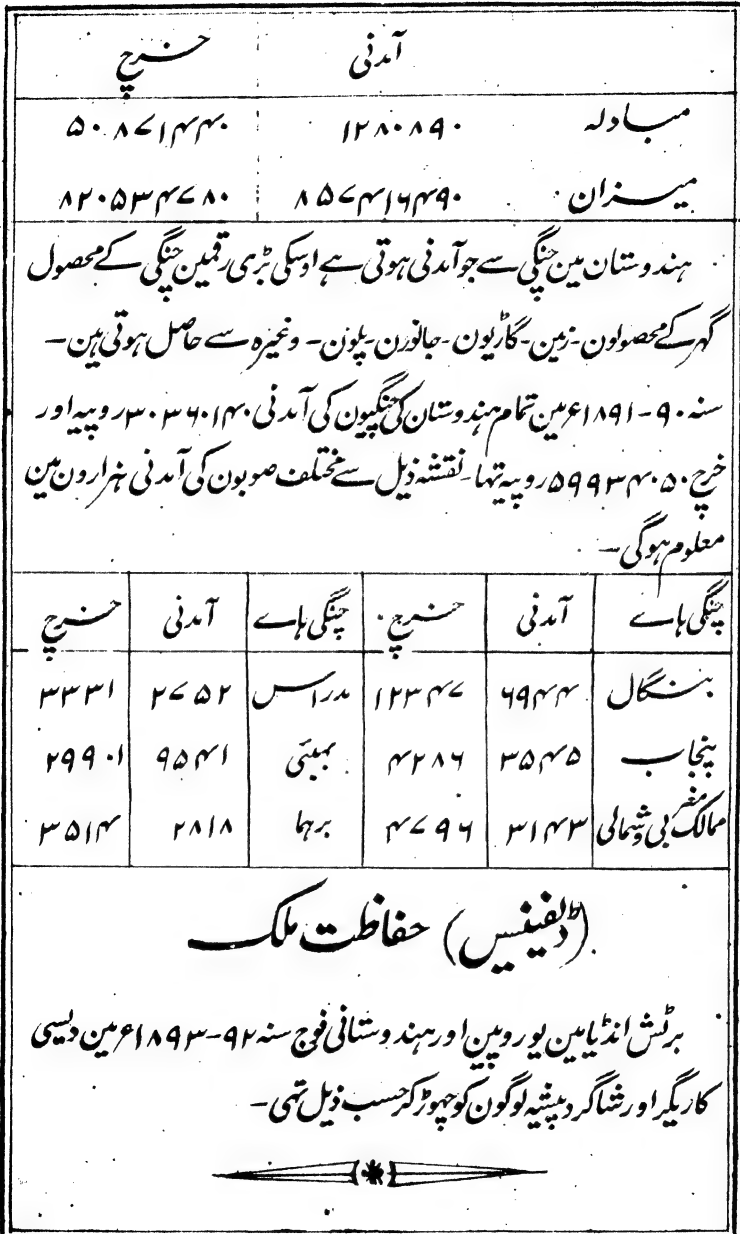 آمدنی خرچ
مبادلہ ۱۲۸۰۸۹۰ ۵۰۸۷۱۴۴۰
میزان ۸۵۷۴۱۶۴۹۰ ۸۲۰۵۳۴۷۸۰
ہندوستان مین چنگی سے جو آمدنی ہوتی ہے اوسکی بڑی رقمین چنگی کے محصول
گہر کے محصولون۔ زمین۔ گاڑیون۔ جانورن۔ پلون۔ وغیرہ سے حاصل ہوتی ہین۔
سنہ ۹۰-۱۸۹۱ء مین تمام ہندوستان کی چنگیون کی آمدنی ۳۰۳۶۰۱۴۰ روپیہ اور
خرچ ۵۹۹۳۴۰۵۰ روپیہ تہا۔ نقشہ ذیل سے مختلف صوبون کی آمدنی ہزارون مین
معلوم ہوگی۔
چنگی ہاے آمدنی خرچ چنگی ہاے آمدنی خرچ
بنگال ۶۹۴۴ ۱۲۳۴۷ مدراس ۲۷۵۲ ۳۳۳۱
پنجاب ۳۵۴۵ ۴۲۸۶ بمبئی ۹۵۴۱ ۲۹۹۰۱
ممالک مغربی و شمالی ۳۱۴۳ ۴۷۹۶ برہما ۲۸۱۸ ۳۵۱۴
(ڈیفینس) حفاظت ملک
برٹش انڈیا مین یوروپین اور ہندوستانی فوج سنہ ۹۲-۱۸۹۳ء مین دیسی
کاریگر اور شاگرد پیشیہ لوگون کو چہوڑ کر حسب ذیل تہی۔